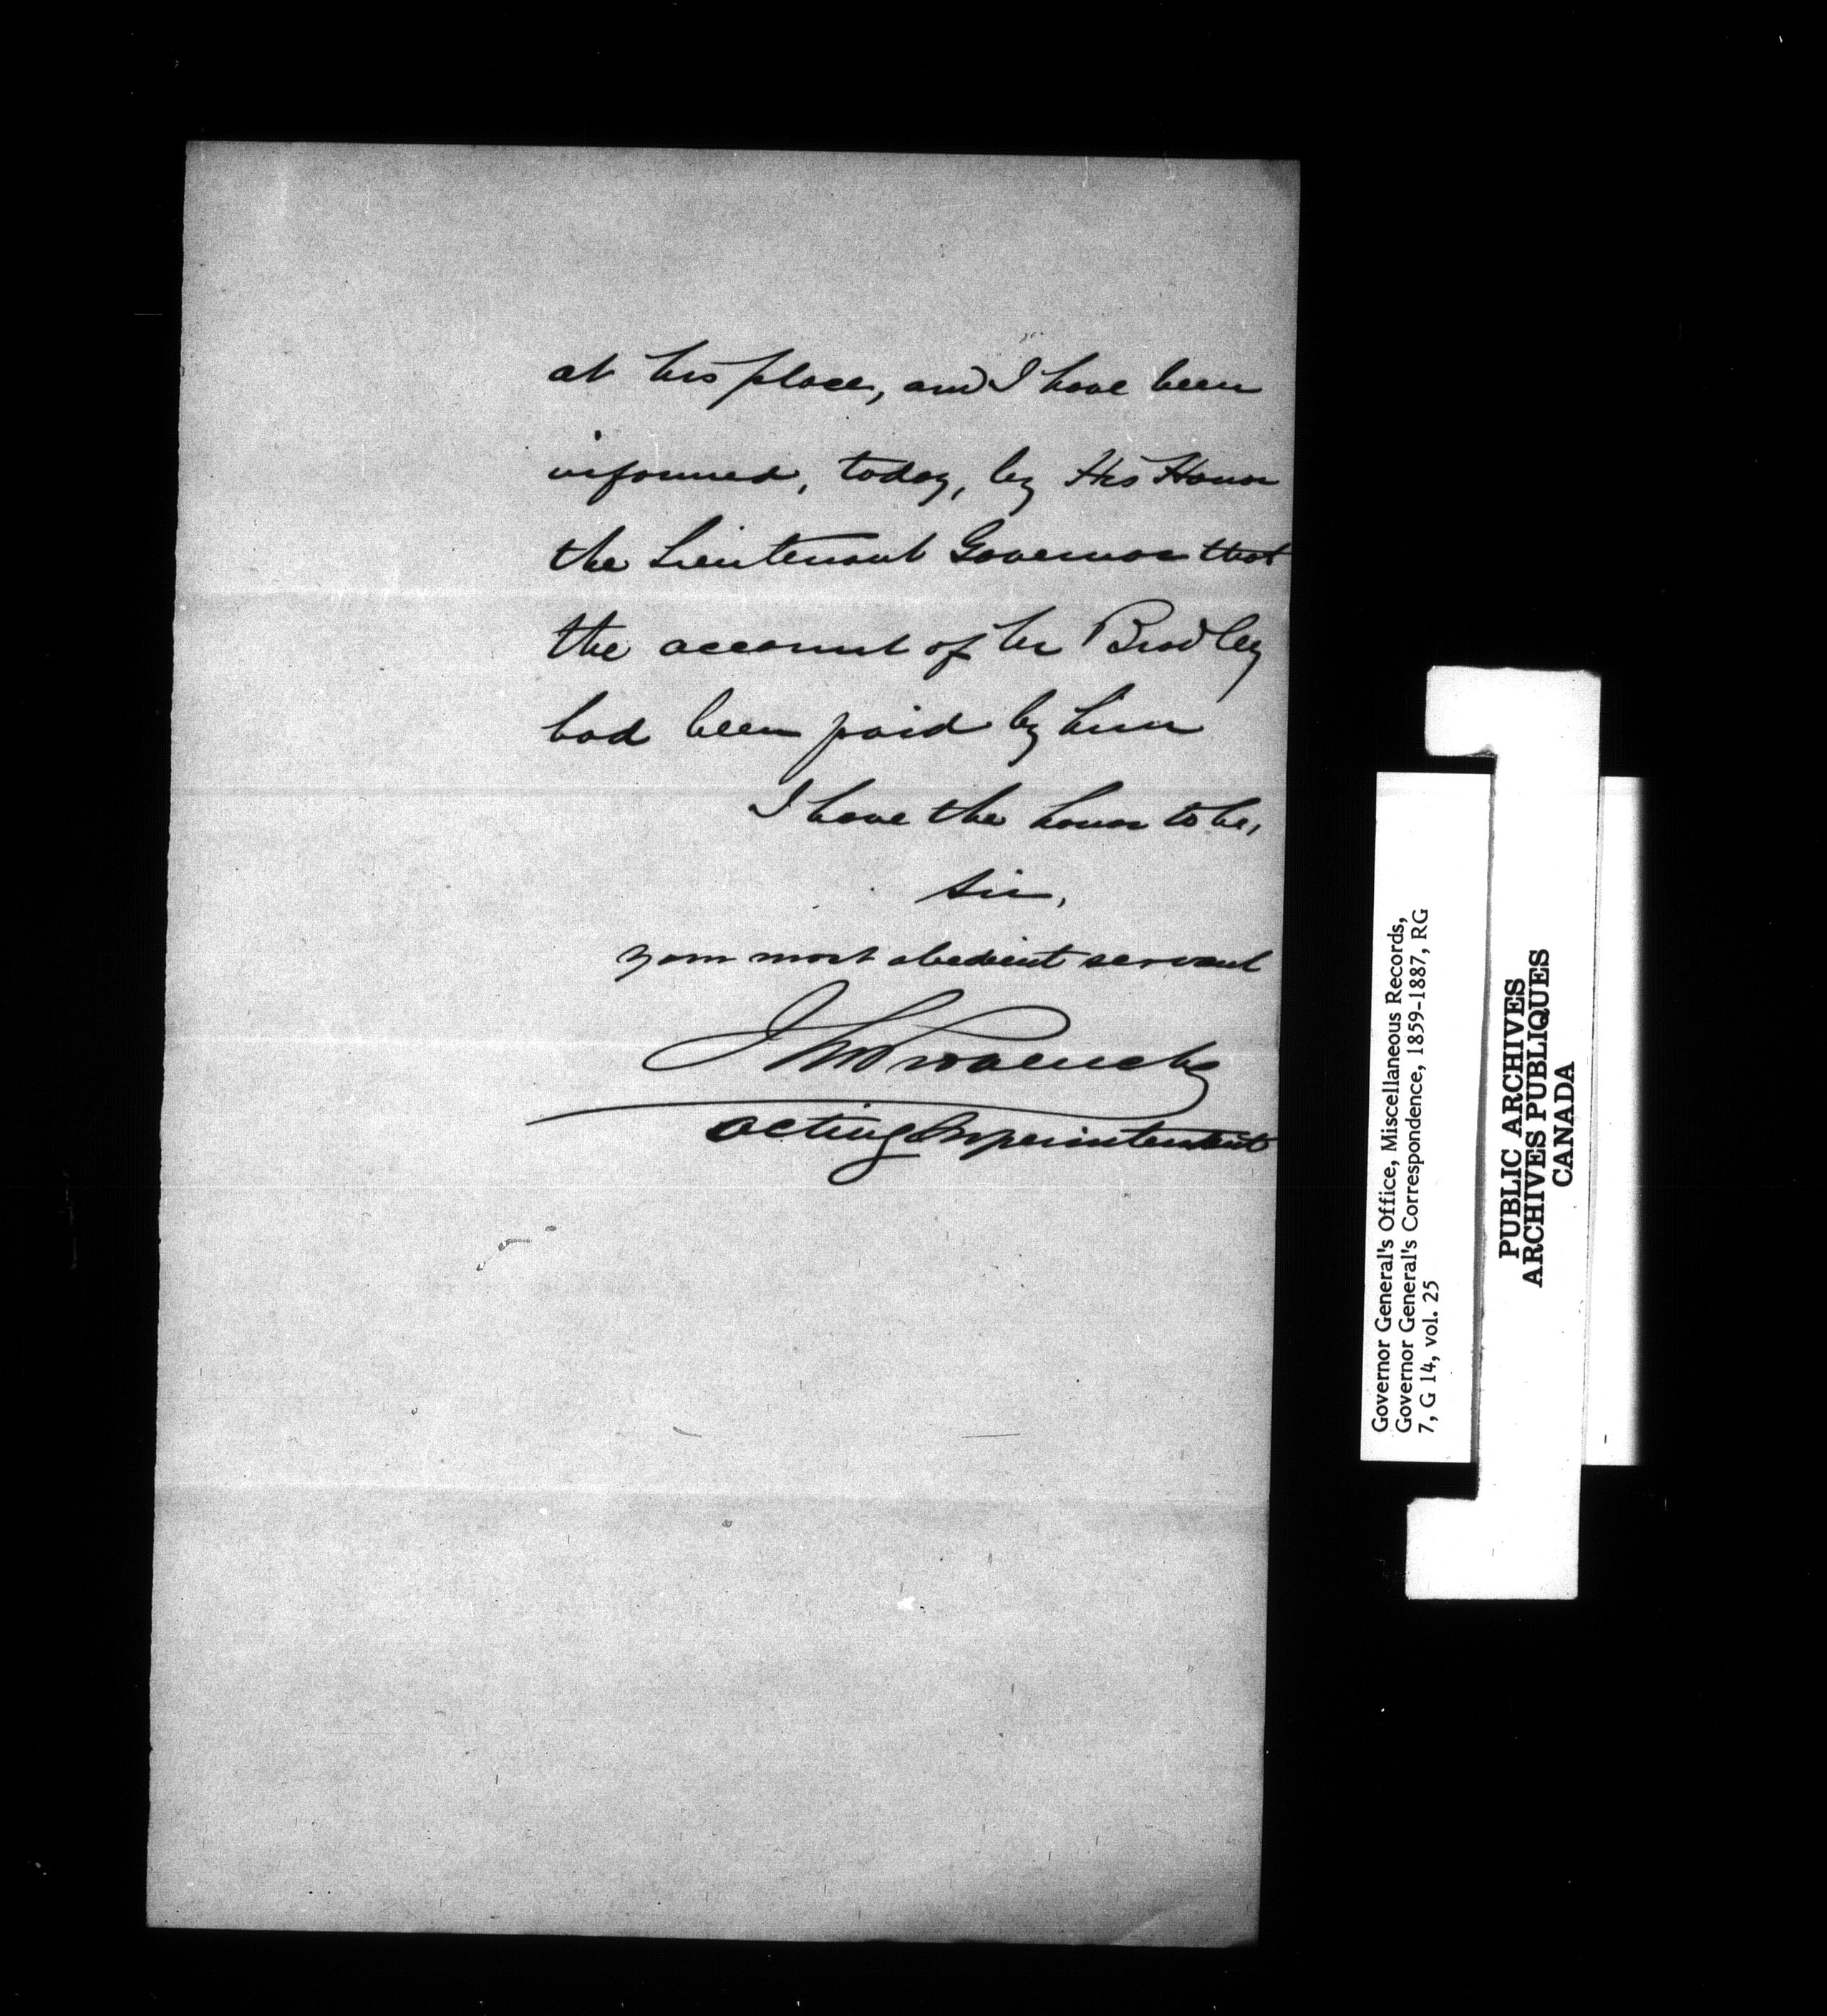 at his place, and I have been
informed, today, by His Honor
the Lieutenant Governor that
the account of Mr Bradley
had been paid by him
I have the honor to be,
Sir,
your most obedient servant
J A N Provencher
Acting Superintendent
Governor General's Office, Miscellaneous Records,
Governor General's Correspondence, 1859-1887, RG
7, G 14, vol. 25
PUBLIC ARCHIVES
ARCHIVES PUBLIQUES
CANADA